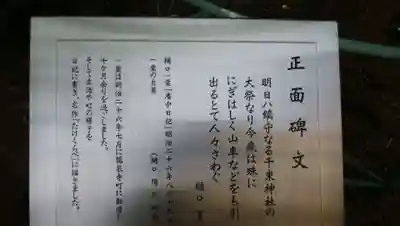 正面碑文
明日ハ鎮守なる千束神社の
大祭なり今歳は殊に
にぎはしく山車などをも引
出るとて人々さわぐ
樋口
樋口一葉「塵中日記」明治二十六年八月
一葉の自筆
一葉は明治二十六年七月に龍泉寺町に転居
十ケ月余りを過ごしました。
そして生活や町の様子を
日記に書き、名作「たけくらべ」に描きました。